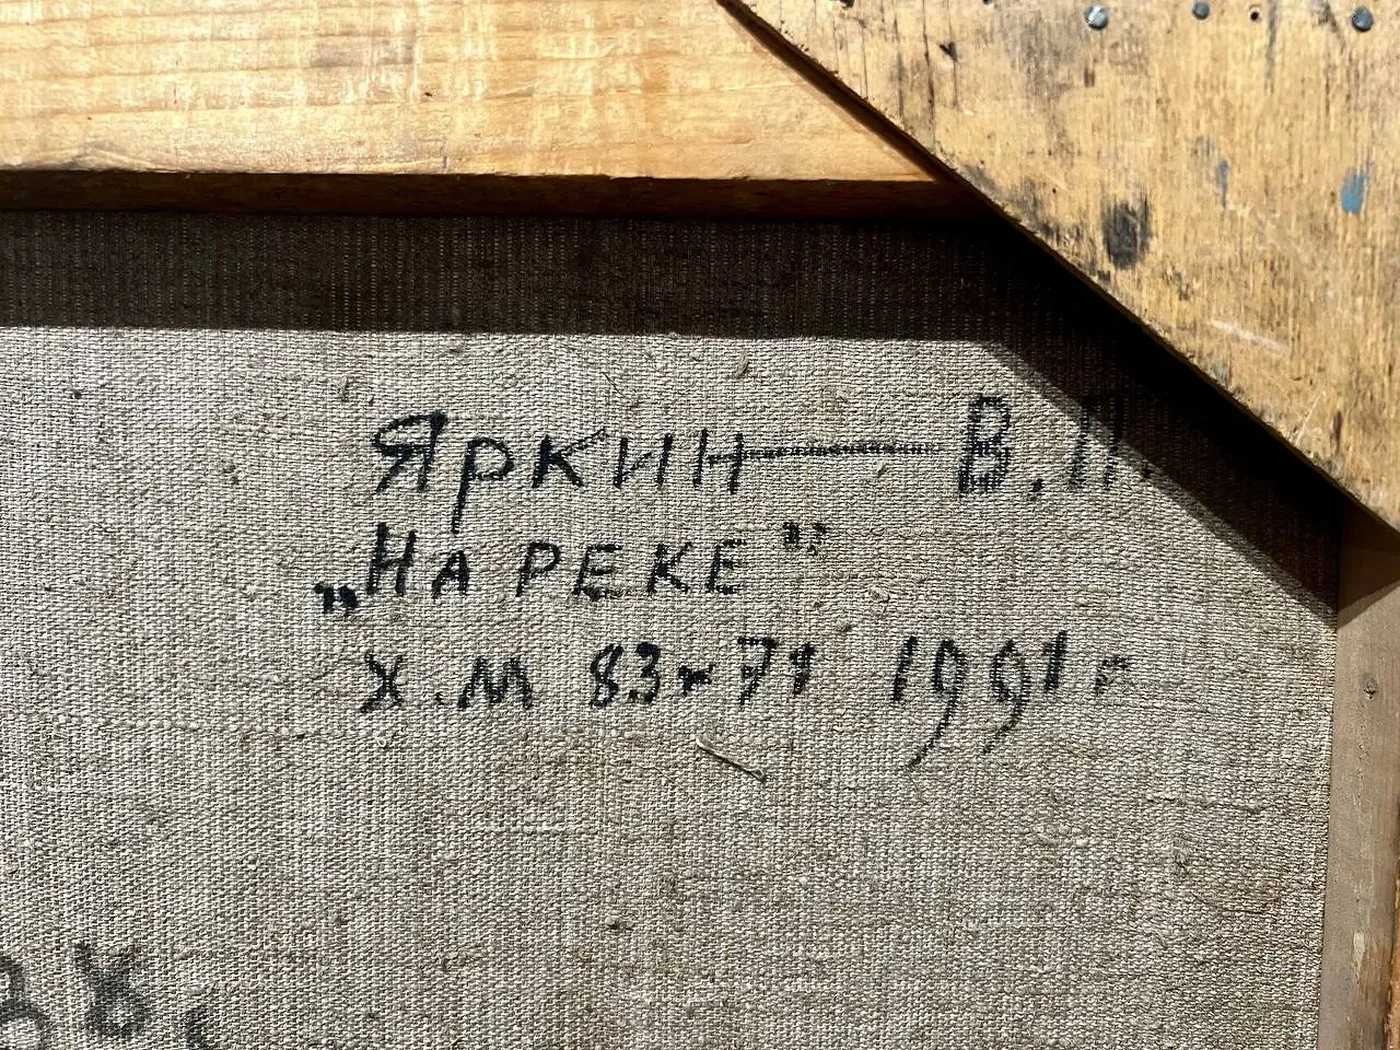 Яркин — В.П.
„На реке”
х.м 83х71 1991г